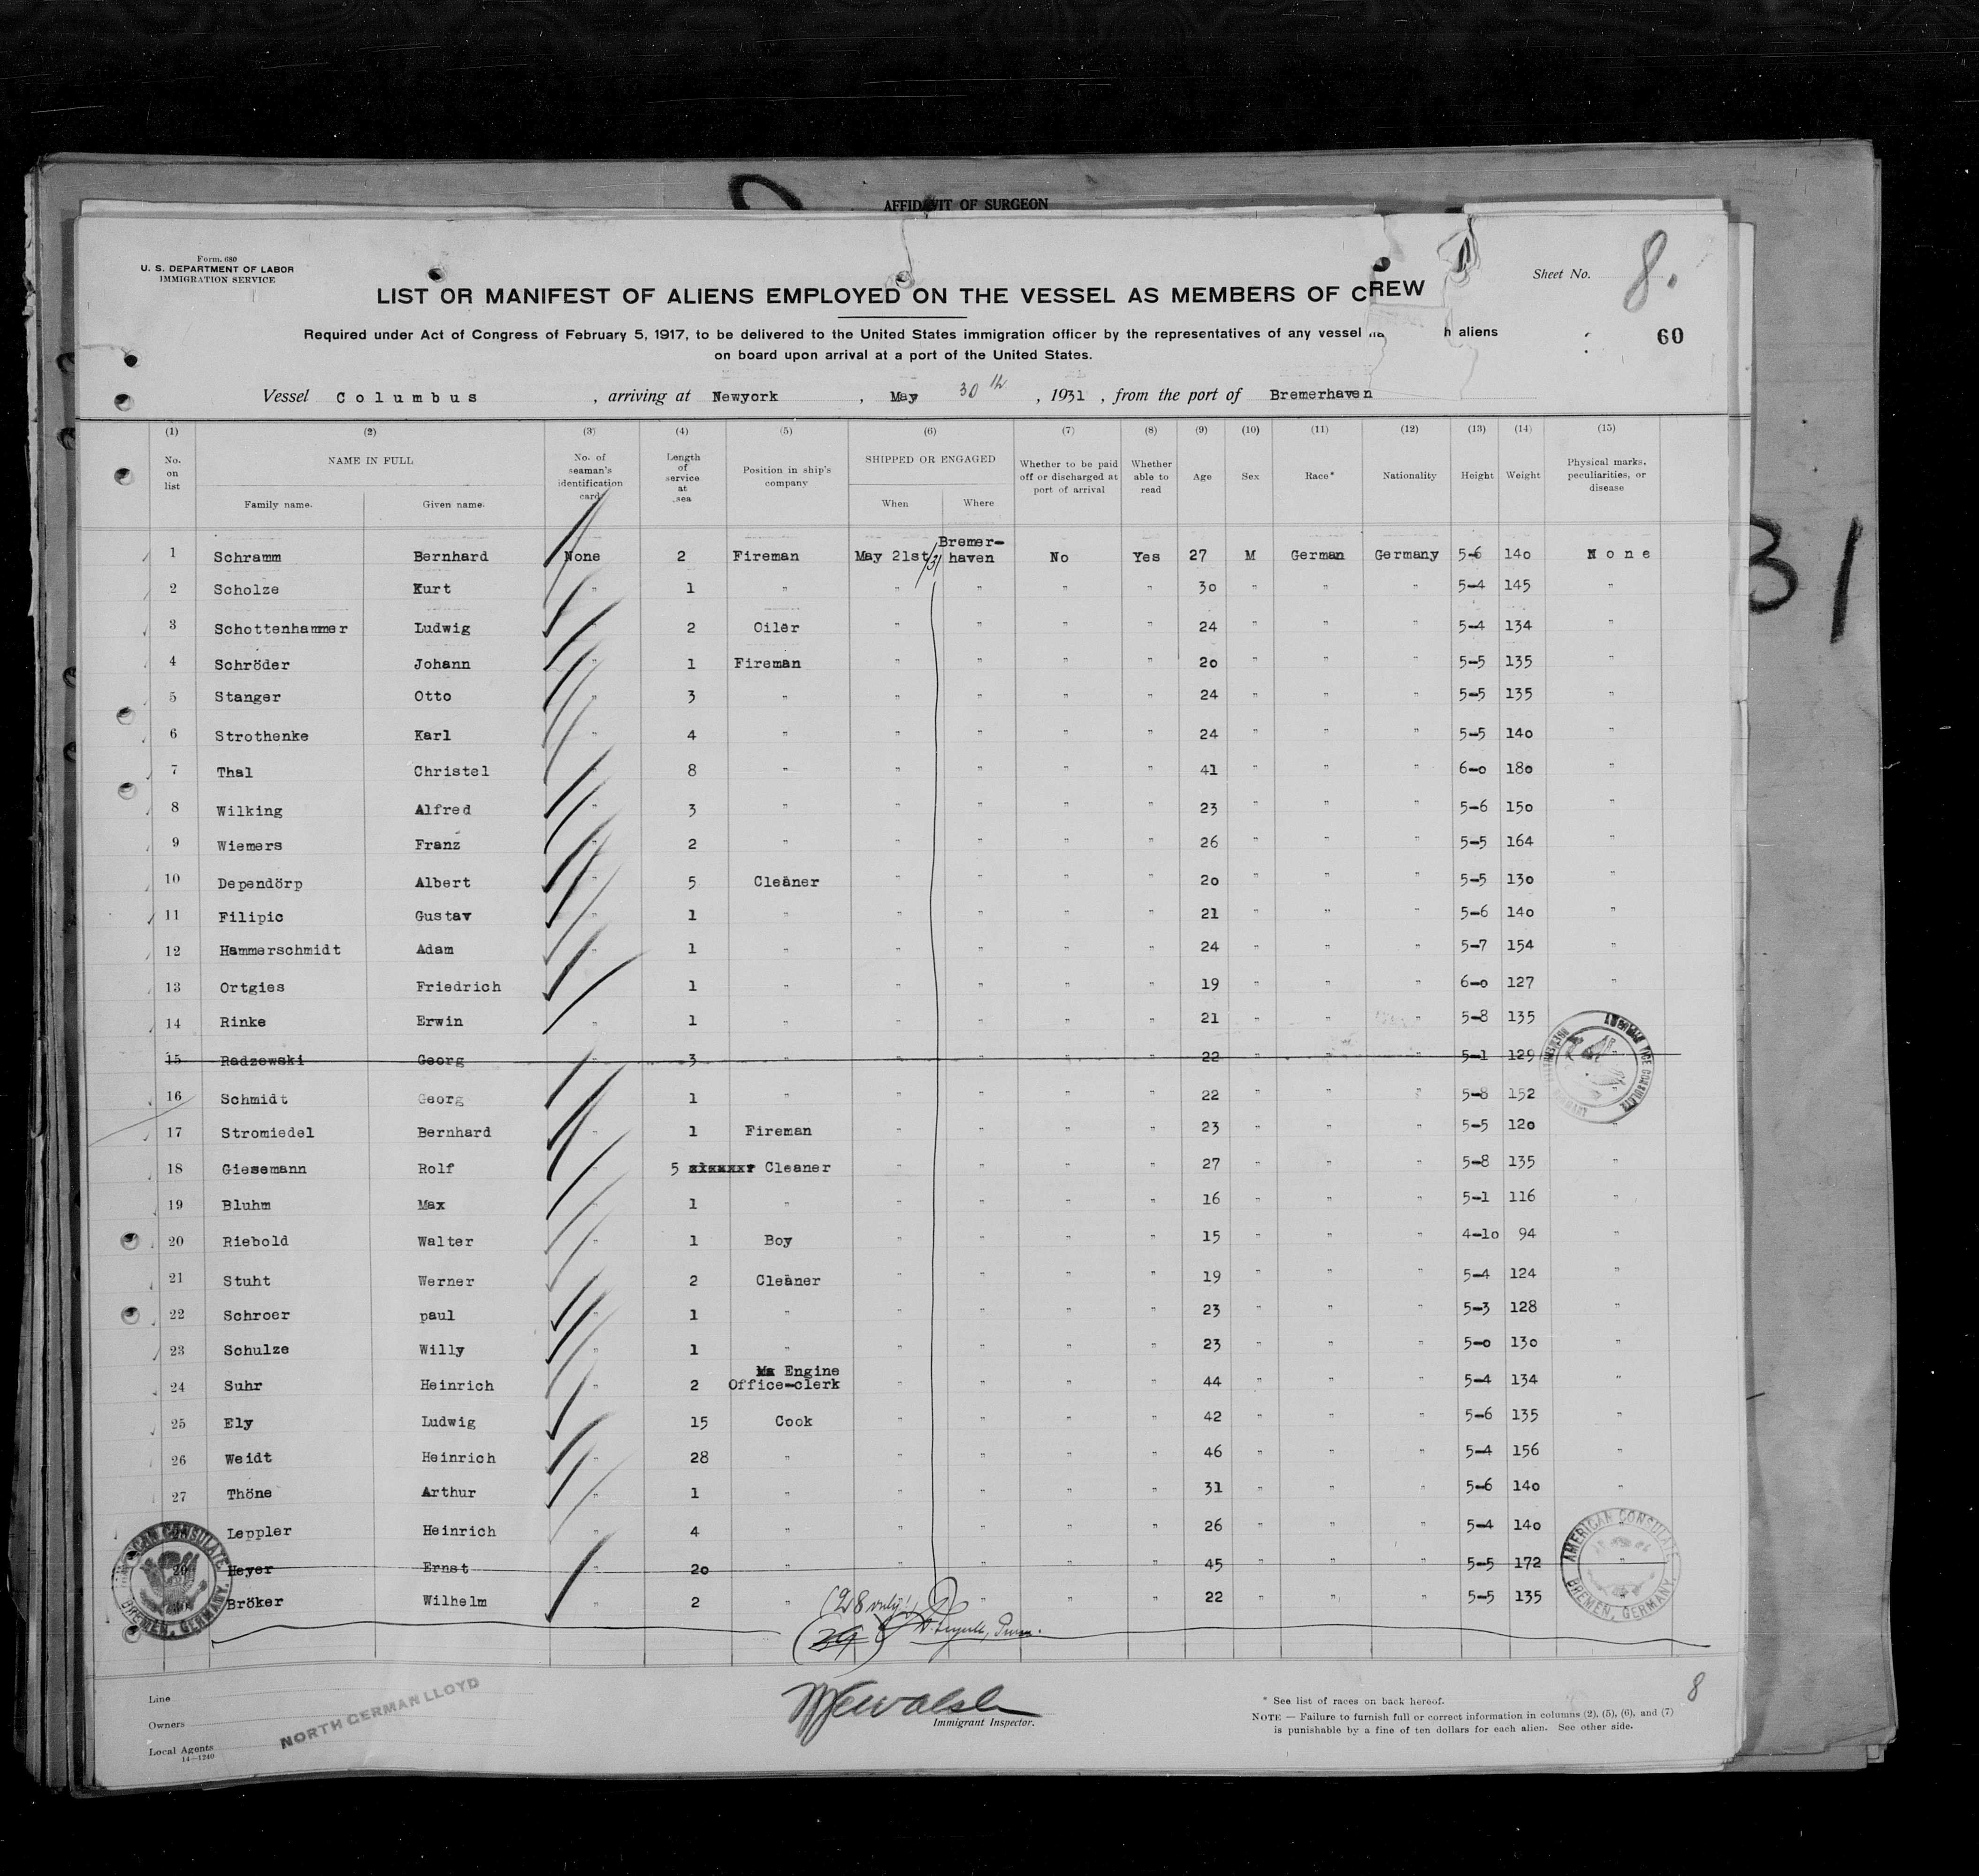 AFFIDAVIT OF SURGEON
Form 680
U. S. DEPARTMENT OF LABOR
IMMIGRATION SERVICE
Sheet No. 8.
LIST OR MANIFEST OF ALIENS EMPLOYED ON THE VESSEL AS MEMBERS OF CREW
Required under Act of Congress of February 5, 1917, to be delivered to the United States immigration officer by the representatives of any vessel h aliens
60
on board upon arrival at a port of the United States.
Vessel Columbus , arriving at Newyork , May 30th , 1931 , from the port of Bremerhaven
(1) (2) (3) (4) (5) (6) (7) (8) (9) (10) (11) (12) (13) (14) (15)
No. on list NAME IN FULL Family name. Given name. No. of seaman's identification card Length of service at sea Position in ship's company SHIPPED OR ENGAGED When Where Whether to be paid off or discharged at port of arrival Whether able to read Age Sex Race* Nationality Height Weight Physical marks, peculiarities, or disease
1 Schramm Bernhard None 2 Fireman May 21st/31 Bremer-haven No Yes 27 M German Germany 5-6 140 None
2 Scholze Kurt " 1 " " " " " 30 " " " 5-4 145 "
3 Schottenhammer Ludwig " 2 Oiler " " " " 24 " " " 5-4 134 "
4 Schröder Johann " 1 Fireman " " " " 20 " " " 5-5 135 "
5 Stanger Otto " 3 " " " " " 24 " " " 5-5 135 "
6 Strothenke Karl " 4 " " " " " 24 " " " 5-5 140 "
7 Thal Christel " 8 " " " " " 41 " " " 6-0 180 "
8 Wilking Alfred " 3 " " " " " 23 " " " 5-6 150 "
9 Wiemers Franz " 2 " " " " " 26 " " " 5-5 164 "
10 Dependörp Albert " 5 Cleaner " " " " 20 " " " 5-5 130 "
11 Filipic Gustav " 1 " " " " " 21 " " " 5-6 140 "
12 Hammerschmidt Adam " 1 " " " " " 24 " " " 5-7 154 "
13 Ortgies Friedrich " 1 " " " " " 19 " " " 6-0 127 "
14 Rinke Erwin " 1 " " " " " 21 " " " 5-8 135
15 Radzewski Georg 3 " " " " " 22 " " " 5-1 129 "
16 Schmidt Georg " 1 " " " " " 22 " " " 5-8 152
17 Stromiedel Bernhard " 1 Fireman " " " " 23 " " " 5-5 120 "
18 Giesemann Rolf " 5 Cleaner " " " " 27 " " " 5-8 135 "
19 Bluhm Max " 1 " " " " " 16 " " " 5-1 116 "
20 Riebold Walter " 1 Boy " " " " 15 " " " 4-10 94 "
21 Stuht Werner " 2 Cleaner " " " " 19 " " " 5-4 124 "
22 Schroer paul " 1 " " " " " 23 " " " 5-3 128 "
23 Schulze Willy " 1 " " " " " 23 " " " 5-0 130 "
24 Suhr Heinrich " 2 Engine Office-clerk " " " " 44 " " " 5-4 134 "
25 Ely Ludwig " 15 Cook " " " " 42 " " " 5-6 135 "
26 Weidt Heinrich " 28 " " " " " 46 " " " 5-4 156 "
27 Thöne Arthur " 1 " " " " " 31 " " " 5-6 140 "
Leppler Heinrich " 4 " " " " " 26 " " " 5-4 140 "
Heyer Ernst " 20 " " " " " 45 " " " 5-5 172 "
Bröker Wilhelm 2 " " " " 22 " " " 5-5 135 "
(28 only!)
(29)
AMERICAN VICE CONSULATE
AMERICAN CONSULATE BREMEN, GERMANY.
AMERICAN CONSULATE BREMEN, GERMANY.
Line
Owners
Local Agents
14—1240
NORTH GERMAN LLOYD
Immigrant Inspector.
* See list of races on back hereof.
NOTE — Failure to furnish full or correct information in columns (2), (5), (6), and (7)
is punishable by a fine of ten dollars for each alien. See other side.
8
31